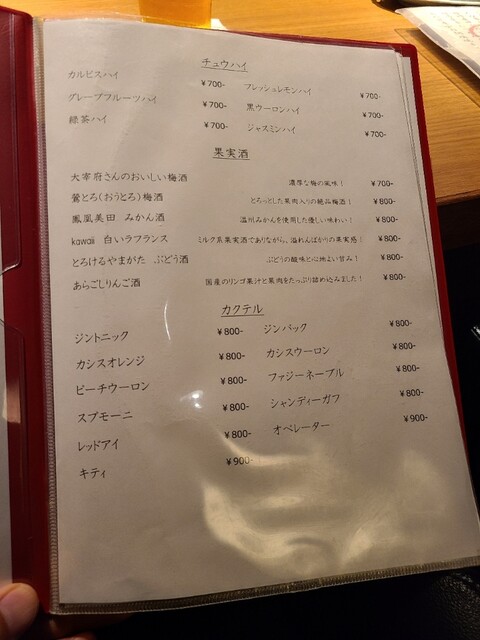 チュウハイ
カルピスハイ ¥700- フレッシュレモンハイ ¥700-
グレープフルーツハイ ¥700- 黒ウーロンハイ ¥700-
緑茶ハイ ¥700- ジャスミンハイ ¥700-
果実酒
大宰府さんのおいしい梅酒 濃厚な梅の風味！ ¥700-
鶯とろ(おうとろ)梅酒 とろっとした果肉入りの絶品梅酒！ ¥800-
鳳凰美田 みかん酒 温州みかんを使用した優しい味わい！ ¥800-
kawaii 白いラフランス ミルク系果実酒でありながら、溢れんばかりの果実感！ ¥800-
とろけるやまがた ぶどう酒 ぶどうの酸味と心地よい甘み！ ¥800-
あらごしりんご酒 国産のリンゴ果汁と果肉をたっぷり詰め込みました！ ¥800-
カクテル
ジントニック ¥800- ジンバック ¥800-
カシスオレンジ ¥800- カシスウーロン ¥800-
ピーチウーロン ¥800- ファジーネーブル ¥800-
スプモーニ ¥800- シャンディーガフ ¥800-
レッドアイ ¥800- オペレーター ¥900-
キティ ¥900-